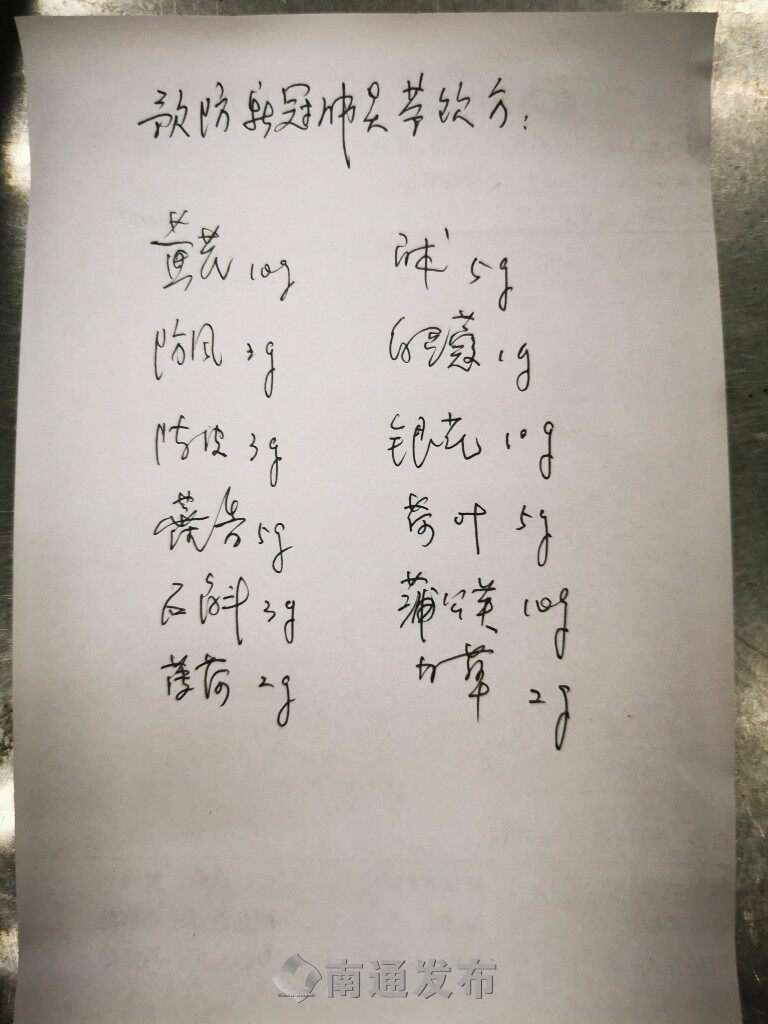 预防新冠肺炎茶饮方:
黄芪 10g 白术 5g
防风 3g 白豆蔻 1g
陈皮 3g 银花 10g
藿香 5g 荷叶 5g
石斛 3g 蒲公英 10g
薄荷 2g 甘草 2g
南通发布